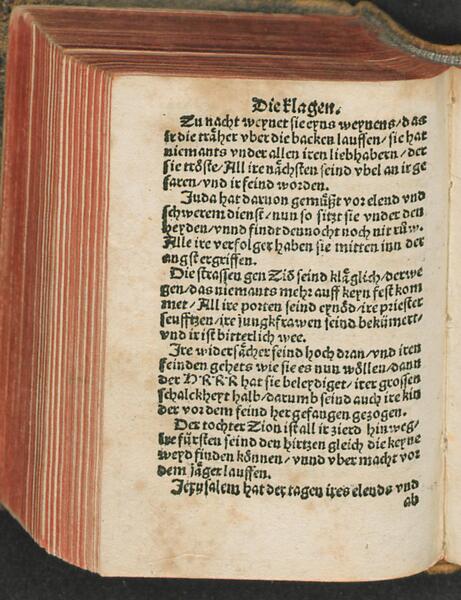 Die klagen.
Zu nacht weynet sie eyns weynens / das
ir die träher vber die backen lauffen / sie hat
niemants vnder allen iren liebhabern / der
sie tröste / All ire nächsten seind vbel an ir ge
faren / vnd ir feind worden.
Juda hat daruon gemüßt vor elend vnd
schwerem dienst / nun so sitzt sie vnder den
heyden / vnnd findt dennocht noch nit rüw.
Alle ire verfolger haben sie mitten inn der
angst ergriffen.
Die strassen gen Ziō seind kläglich / der we
gen / das niemants mehr auff keyn fest kom
met / All ire porten seind eynöd / ire priester
seufftzen / ire jungkfrawen seind bekümert /
vnd ir ist bitterlich wee.
Ire widersächer seind hoch dran / vnd iren
feinden gehets wie sie es nun wöllen / dann
der HERR hat sie beleydiget / irer grossen
schalckheyt halb / darumb seind auch ire kin
der vor dem feind her gefangen gezogen.
Der tochter Zion ist all ir zierd hinweg /
ire fürsten seind den hirtzen gleich die keyne
weyd finden können / vnnd vber macht vor
dem jäger lauffen.
Jerusalem hat der tagen ires elends vnd
ab